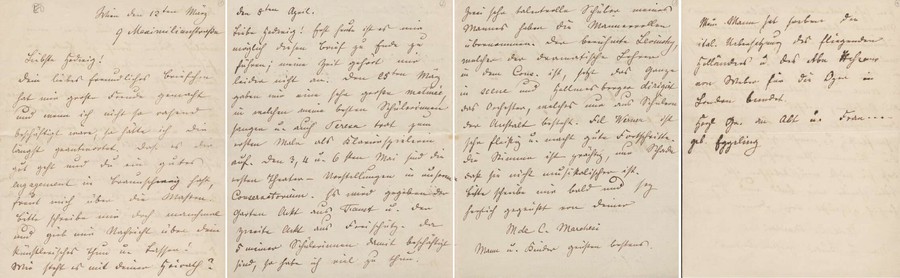 Wien den 13ten März
9 Maximilianstrasse
Liebste Hedwig!
Dein liebes freundliches Briefchen
hat mir grosse Freude gemacht
und wenn ich nicht so rasend
beschäftigt wäre, so hätte ich Dir
längst geantwortet. Dass es Dir
gut geht und Du ein gutes
Engagement in Braunschweig hast,
freut mich über die Massen.
Bitte schreibe mir doch manchmal
und gieb mir Nachricht über Dein
künstlerisches Thun u. Lassen!
Wie steht es mit Deiner Heirath?
den 8ten April.
Liebe Hedwig! Erst heute ist es mir
möglich diesen Brief zu Ende zu
führen; meine Zeit gehört mir
leider nicht an. Den 25ten März
gaben wir eine sehr grosse matinée
in welcher meine besten Schülerinnen
sangen u. auch Teresa trat zum
ersten Male als Klavierspielerin
auf. Den 3, 4 u. 6ten Mai sind die
ersten Theater-Vorstellungen in unserm
Conservatorium. Es wird gegeben der
Garten Akt aus Faust u. der
zweite Akt aus Freischütz. Da
5 meiner Schülerinnen damit beschäftigt
sind, so habe ich viel zu thun.
Zwei sehr talentvolle Schüler meines
Mannes haben die Männerrollen
übernommen. Der berühmte Lewinsky,
welcher der dramatische Lehrer
in dem Cons. ist, setzt das Ganze
in scene und Hellmesberger dirigirt
das Orchester, welches nur aus Schülern
der Anstalt besteht. Frl. ist
sehr fleissig u. macht gute Fortschritte.
Die Stimme ist prächtig, nur Schade
dass sie nicht musikalischer ist.
Bitte schreibe mir bald und sey
herzlich gegrüsst von Deiner
Mde C. Marchesi
Mann u. Kinder grüssen bestens.
Mein Mann hat soeben die
ital. Uebersetzung des fliegenden
Holländers u. des Abu
von Weber für die Oper in
London beendet.
an Abt u.
Eggeling